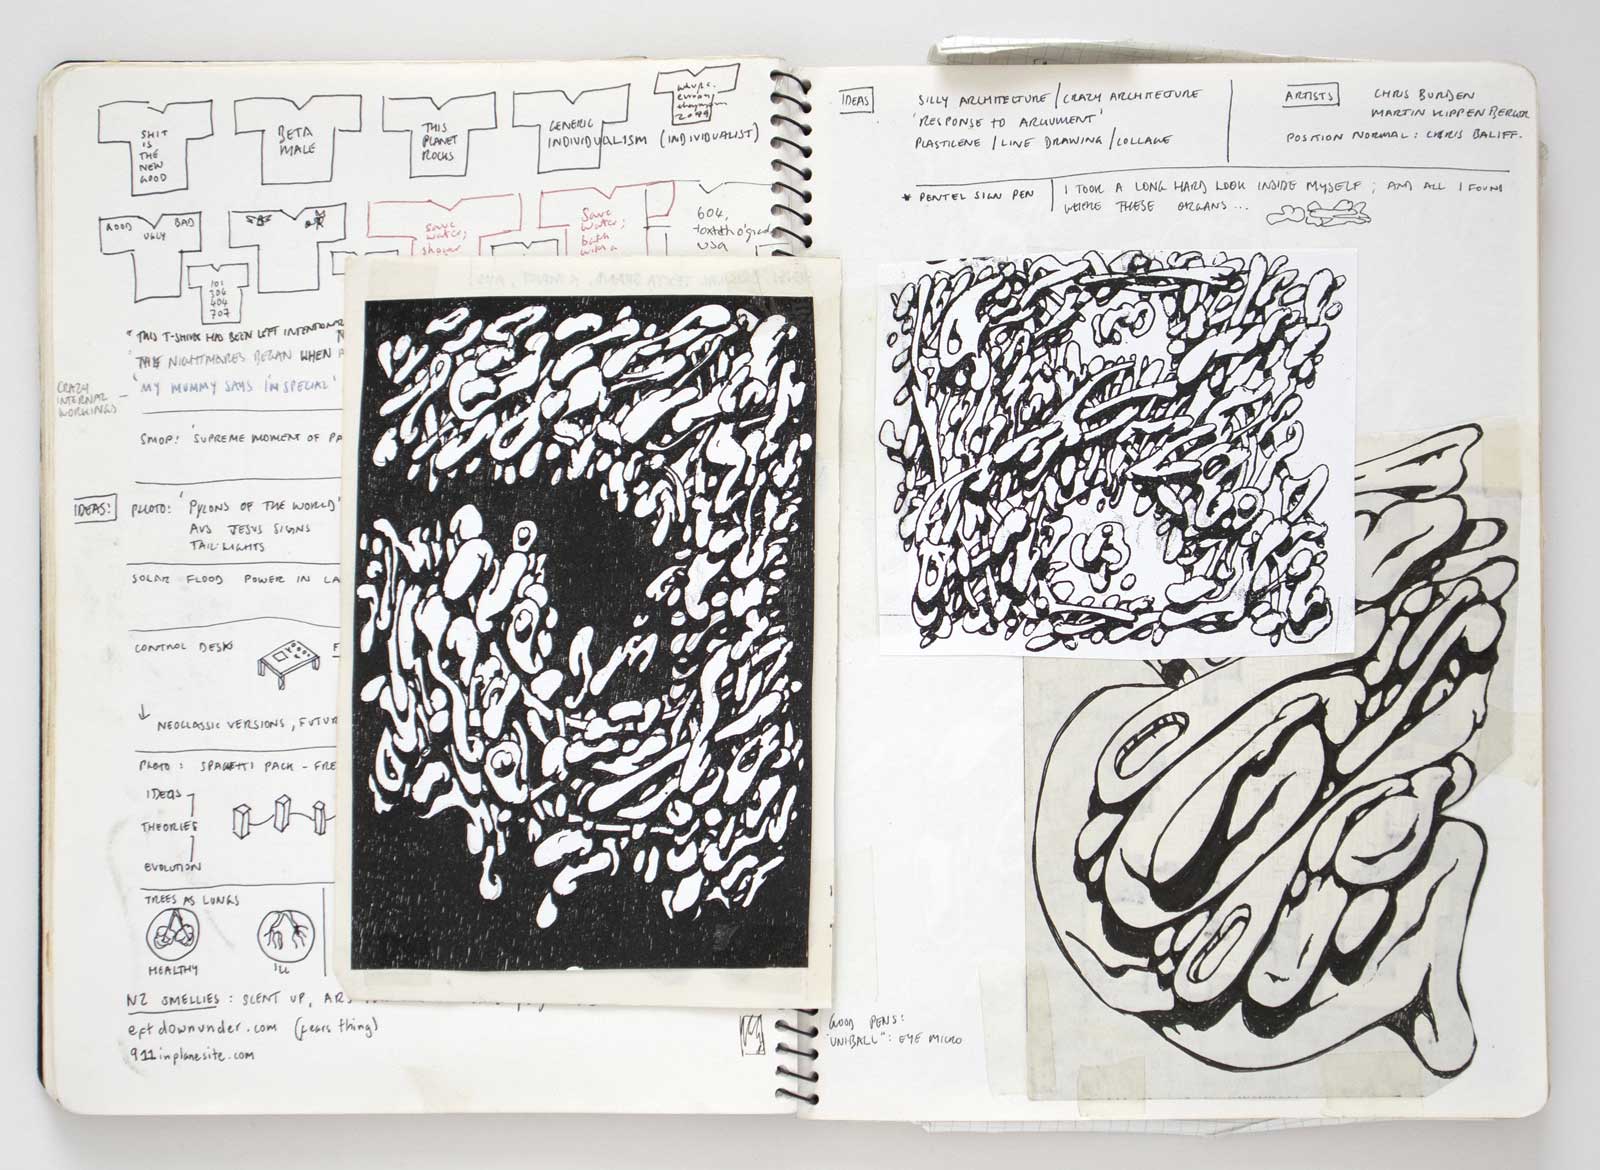 SHIT
IS
THE
NEW
GOOD
BETA
MALE
THIS
PLANET
ROCKS
GENERIC
INDIVIDUALISM (INDIVIDUALIST)
GOOD BAD
UGLY
save
water;
shower
Save
water;
bath
with a
604,
USA
101
304
404
707
"THIS T-SHIRT HAS BEEN LEFT
'THE NIGHTMARES BEGAN WHEN
'MY MUMMY SAYS I'M SPECIAL'
CRAZY
INTERNAL
WORKINGS
SMOP: 'SUPREME MOMENT OF
IDEAS: PHOTO: 'PYLONS OF THE WORLD'
AUS JESUS SIGNS
TAIL-LIGHTS
SOLAR FLOOD POWER IN
CONTROL DESK
NEOCLASSIC VERSIONS,
PHOTO: SPAGETTI PACK -
IDEAS
THEORIES
EVOLUTION
TREES AS LUNGS
HEALTHY ILL
NZ SMELLIES: SCENT UP,
eftdownunder.com (fears thing)
911inplanesite.com
IDEAS SILLY ARCHITECTURE / CRAZY ARCHITECTURE
'RESPONSE TO ARGUMENT'
PLASTICENE / LINE DRAWING / COLLAGE
ARTISTS CHRIS BURDEN
MARTIN KIPPENBERGER
POSITION NORMAL: CHRIS BALIFF.
* PENTEL SIGN PEN
I TOOK A LONG HARD LOOK INSIDE MYSELF; AND ALL I FOUND
WHERE THESE ORGANS...
GOOD PENS:
"UNIBALL": EYE MICRO